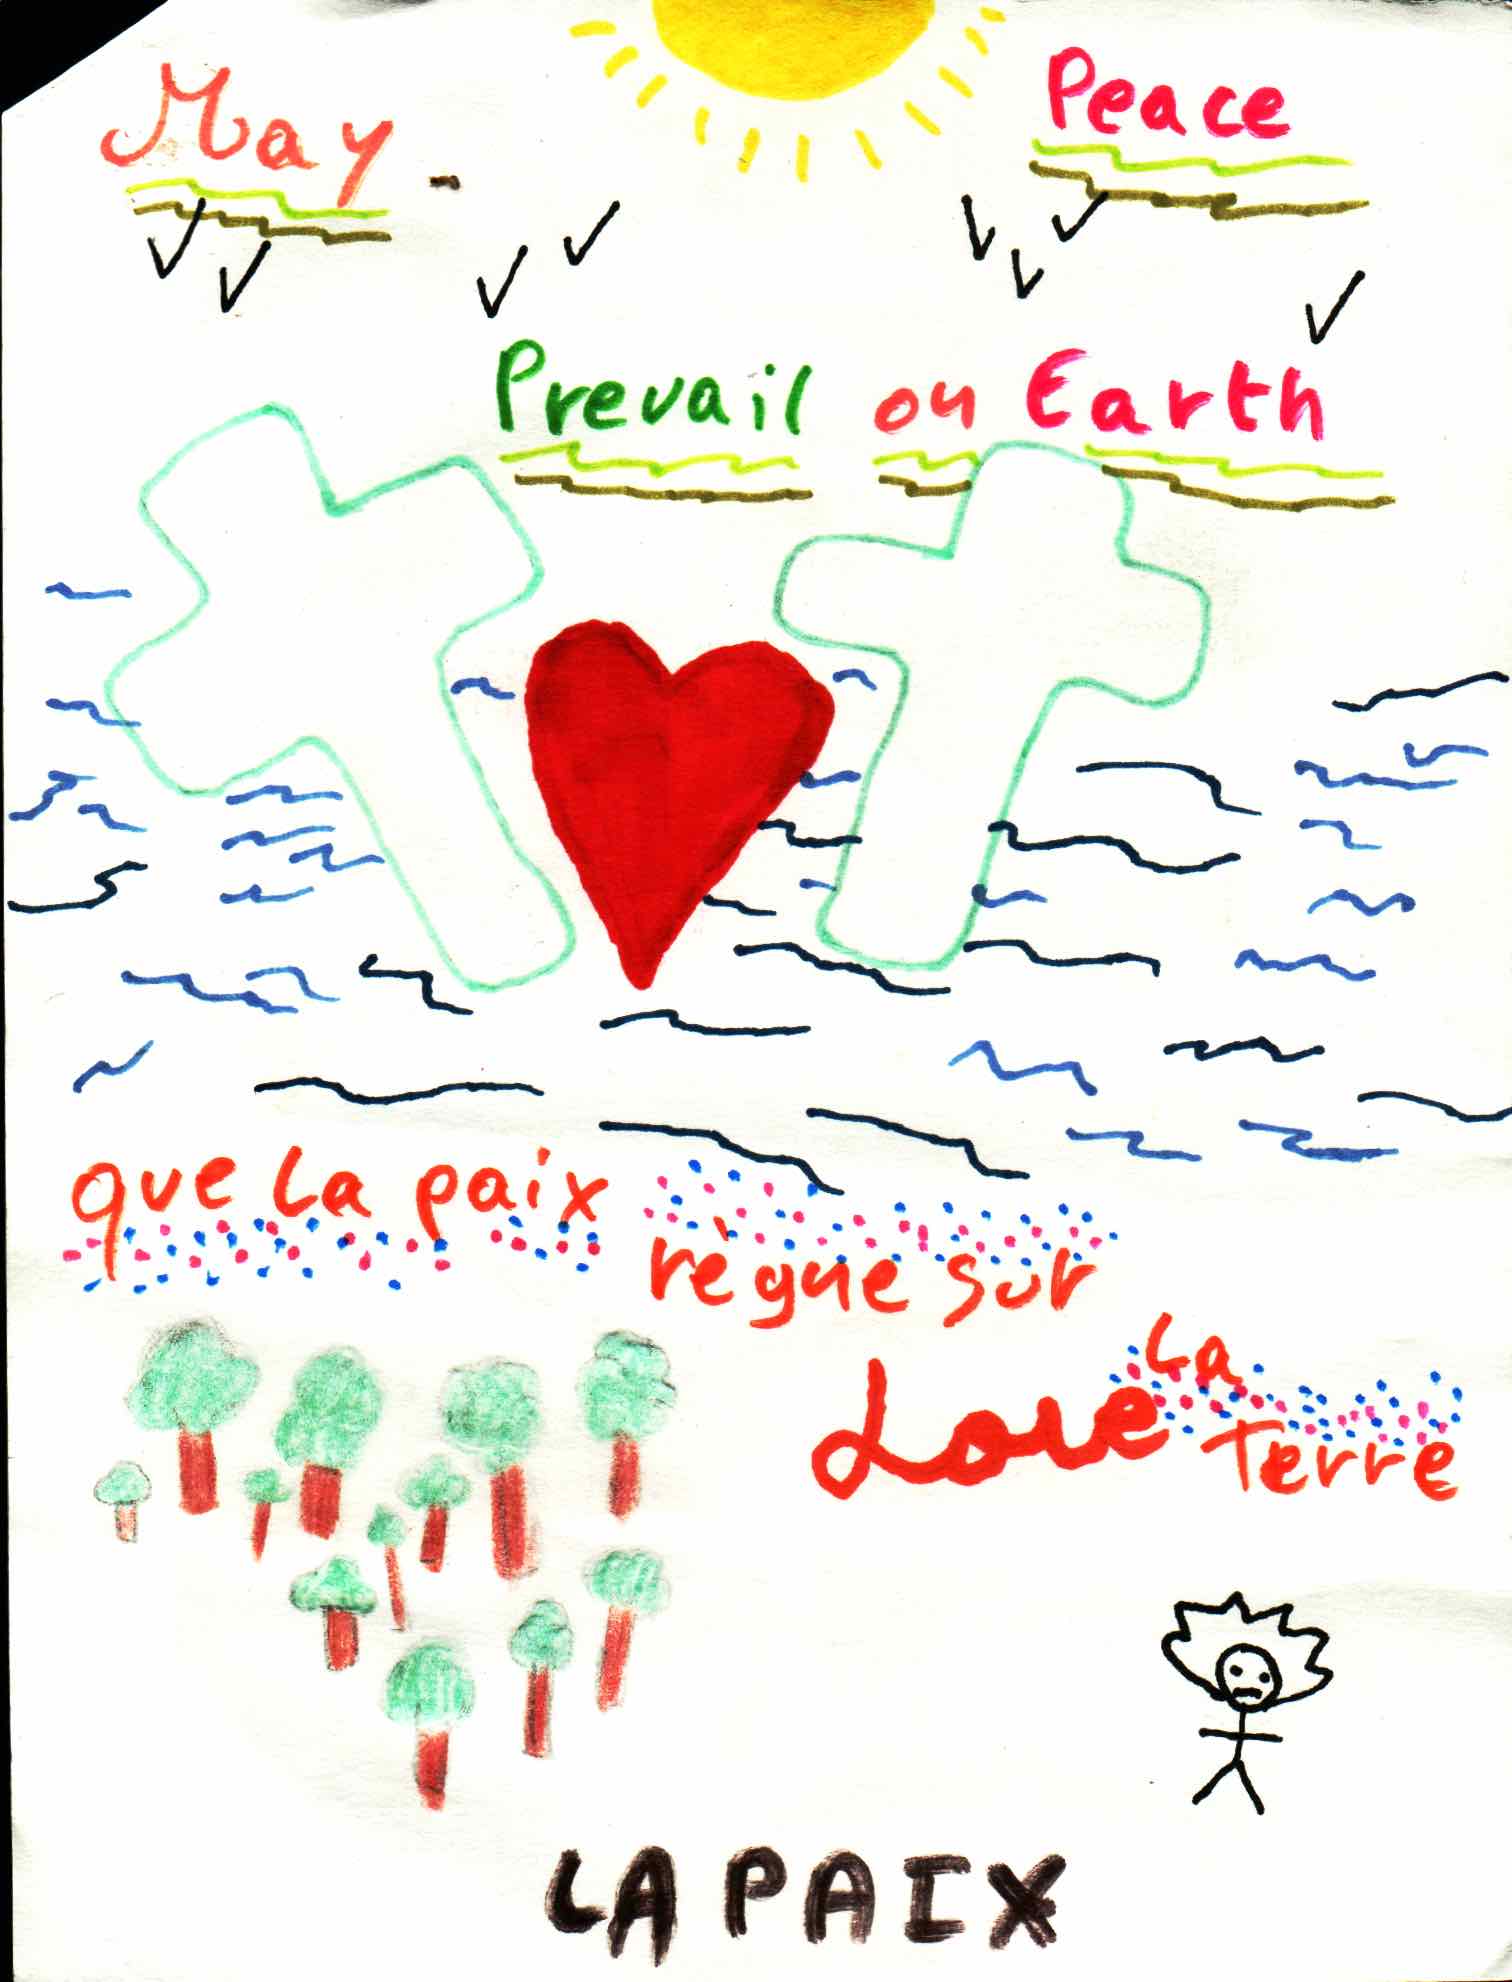 May Peace
Prevail on Earth
que la paix
règne sur
la
Love
Terre
LA PAIX